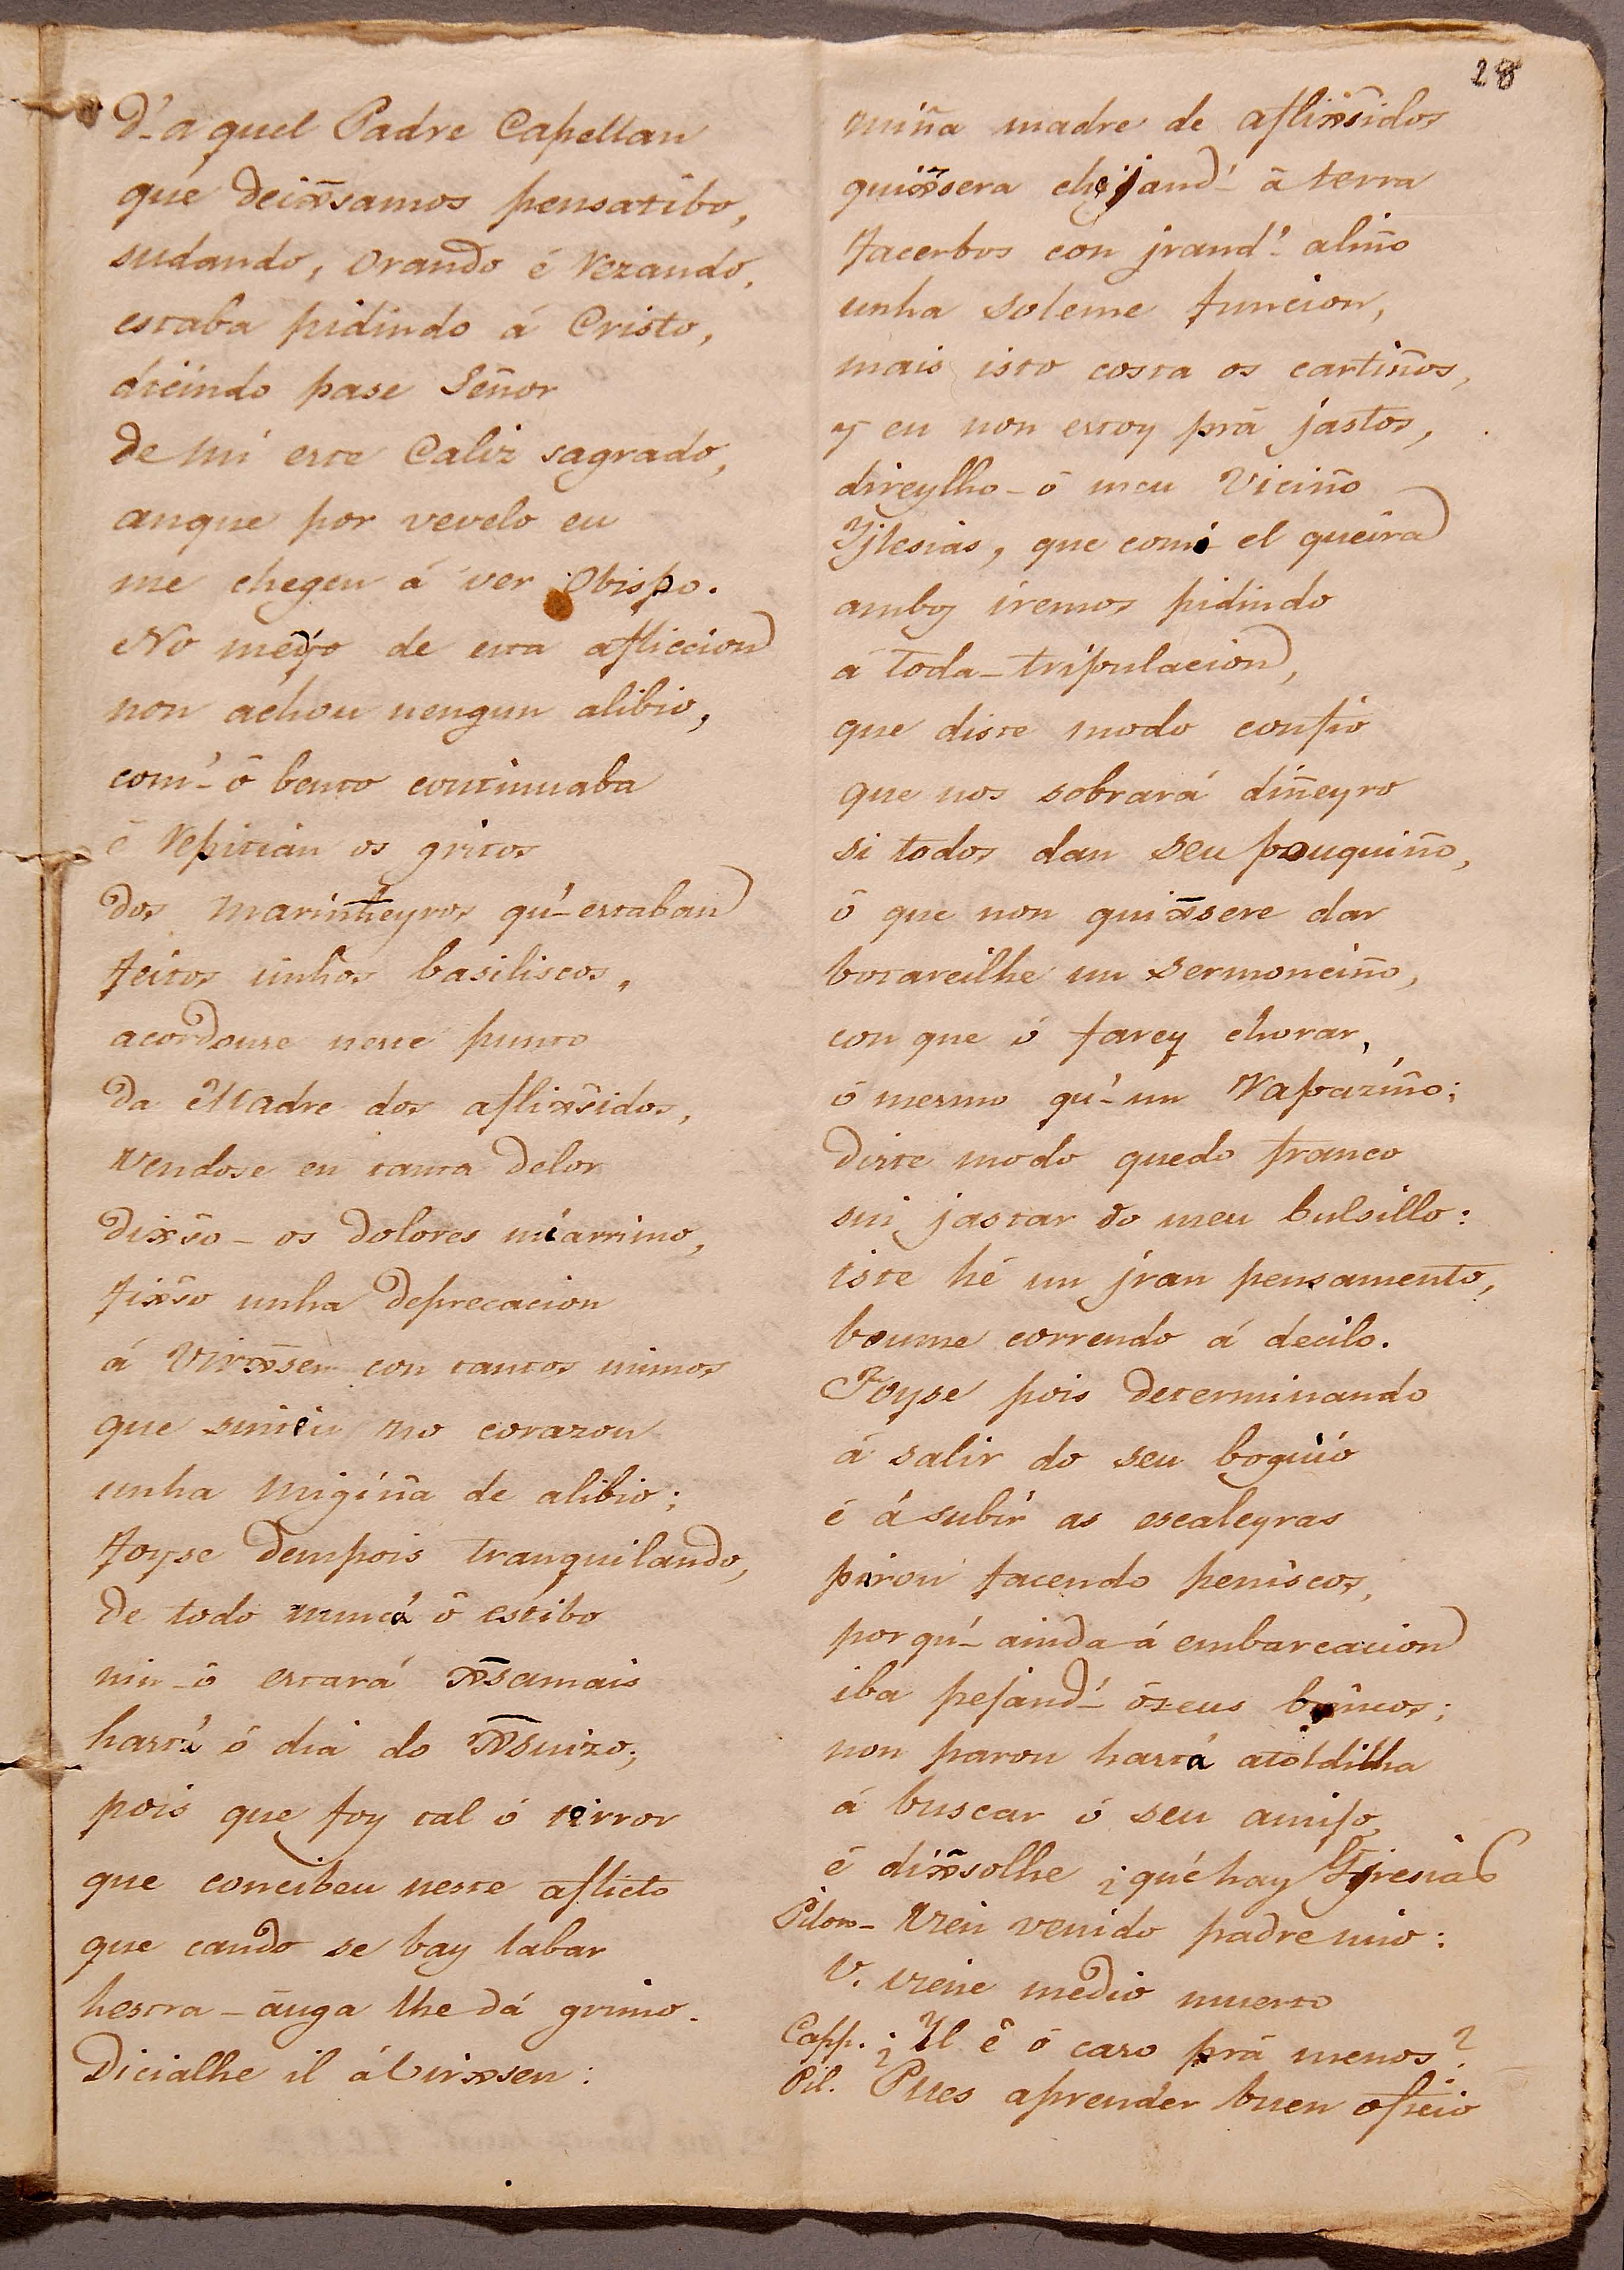 28
D'-aquel Padre Capellan
que deix̃samos pensatibo,
sudando, orando é Rezando,
estaba pidindo á Cristo,
dicindo pase Señor
de mi este Caliz sagrado,
anque por vevelo eu
me chegen á ver Obispo.
No meyo de esta afliccion
non achou nengun alibio,
com'-ô bento continuaba
ē Repitian os gritos
dos marinheyros qu'-estaban
feitos unhos basiliscos,
acordouse neste punto
da Madre dos aflix̃sidos,
vendose en tanta delor
dix̃so-os dolores m'arrimo,
fix̃so unha deprecacion
á Virx̃sen con tantos mimos
que sinteu no corazon
unha migiña de alibio;
foyse dempois tranquilando,
de todo nunca ô estibo
nin-ô estará x̃samais
hast'á ó dia do x̃suizo;
pois que foy tal ó terror
que concibeu neste aflicto
que cando se bay labar
hestra-āuga lhe dá grimo.
Dicialhe il á Virx̃sen:
miña madre de aflix̃sidos
quix̃sera chejand'-ā terra
facerbos con jrand'-aliño
unha soleme funcion,
mais isto costa os cartiños,
y eu non estoy prā jastos,
direylho-ō meu Viciño
Yjlesias, que comó el queira
ambos iremos pidindo
á toda-tripulacion,
que diste modo confio
que nos sobrará diñeyro
si todos dan seu pouquiño,
ô que non quix̃sere dar
botareilhe un sermonciño,
con que ó farey chorar,
ó mesmo qu'-un Rapaziño;
diste modo quedo franco
sin jastar do meu bulsillo:
iste hé un jran pensamento,
boume correndo á decilo.
Foyse pois determinando
á salir do seu boquió
é á subir as escaleyras
pirou facendo peniscos,
porqu'-ainda-á embarcacion
iba pejand'-ōseus brincos;
non parou hastá atoldilha
á buscar ó seu amijo,
ē dix̃solhe ¿qué hay Yjresias
Piloto- Vien venido padre mio:
V. viene medio muerto
Capp. ¿Y l ê ó caso prā menos?
Pil. Pues aprender buen oficio